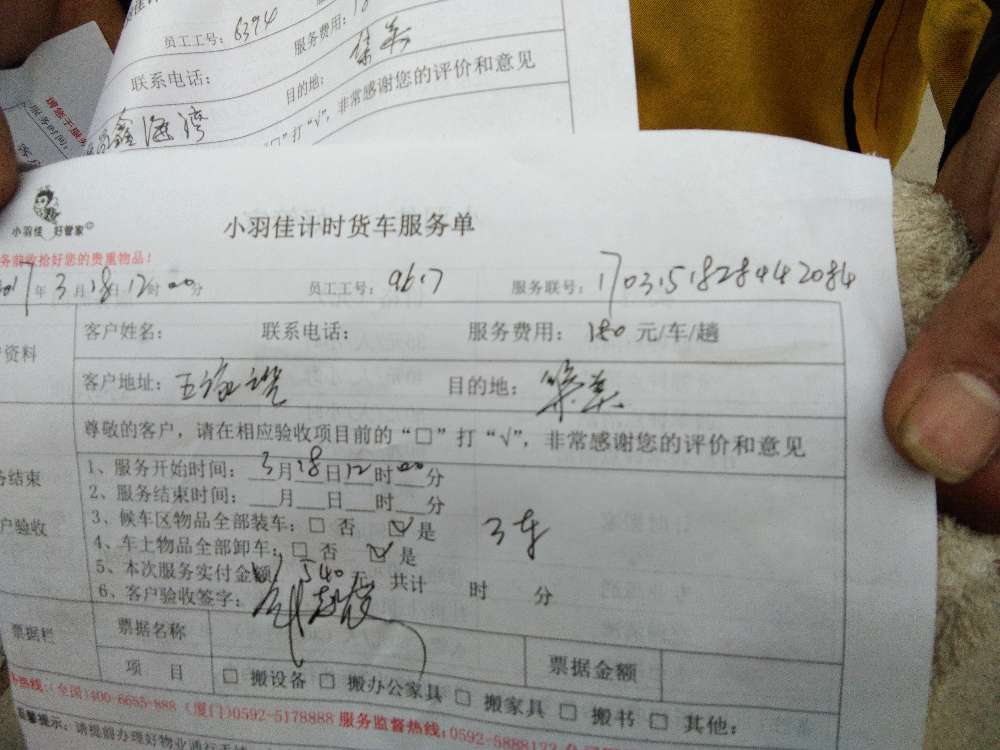 员工工号：6394
服务费用：
联系电话：
目的地：集美
鑫海湾
打“√”，非常感谢您的评价和意见
服务时间：
小羽佳 好管家
小羽佳计时货车服务单
务前收拾好您的贵重物品！
2017年3月18日12时00分
员工工号：9617
服务联号：1703151828442084
资料
客户姓名：
联系电话：
服务费用：180元/车/趟
客户地址：五缘湾
目的地：集美
尊敬的客户，请在相应验收项目前的“□”打“√”，非常感谢您的评价和意见
务结束
户验收
1、服务开始时间：3月18日12时00分
2、服务结束时间：__月__日__时__分
3、候车区物品全部装车：□ 否 ☑ 是
3车
4、车上物品全部卸车：□ 否 ☑ 是
5、本次服务实付金额 540元 共计 时 分
6、客户验收签字：
票据栏
票据名称
票据金额
项 目
□ 搬设备 □ 搬办公家具 □ 搬家具 □ 搬书 □ 其他：
热线：(全国)400-6655-888 (厦门)0592-5178888 服务监督热线：0592-5888133
温馨提示：请提前办理好物业通行手续